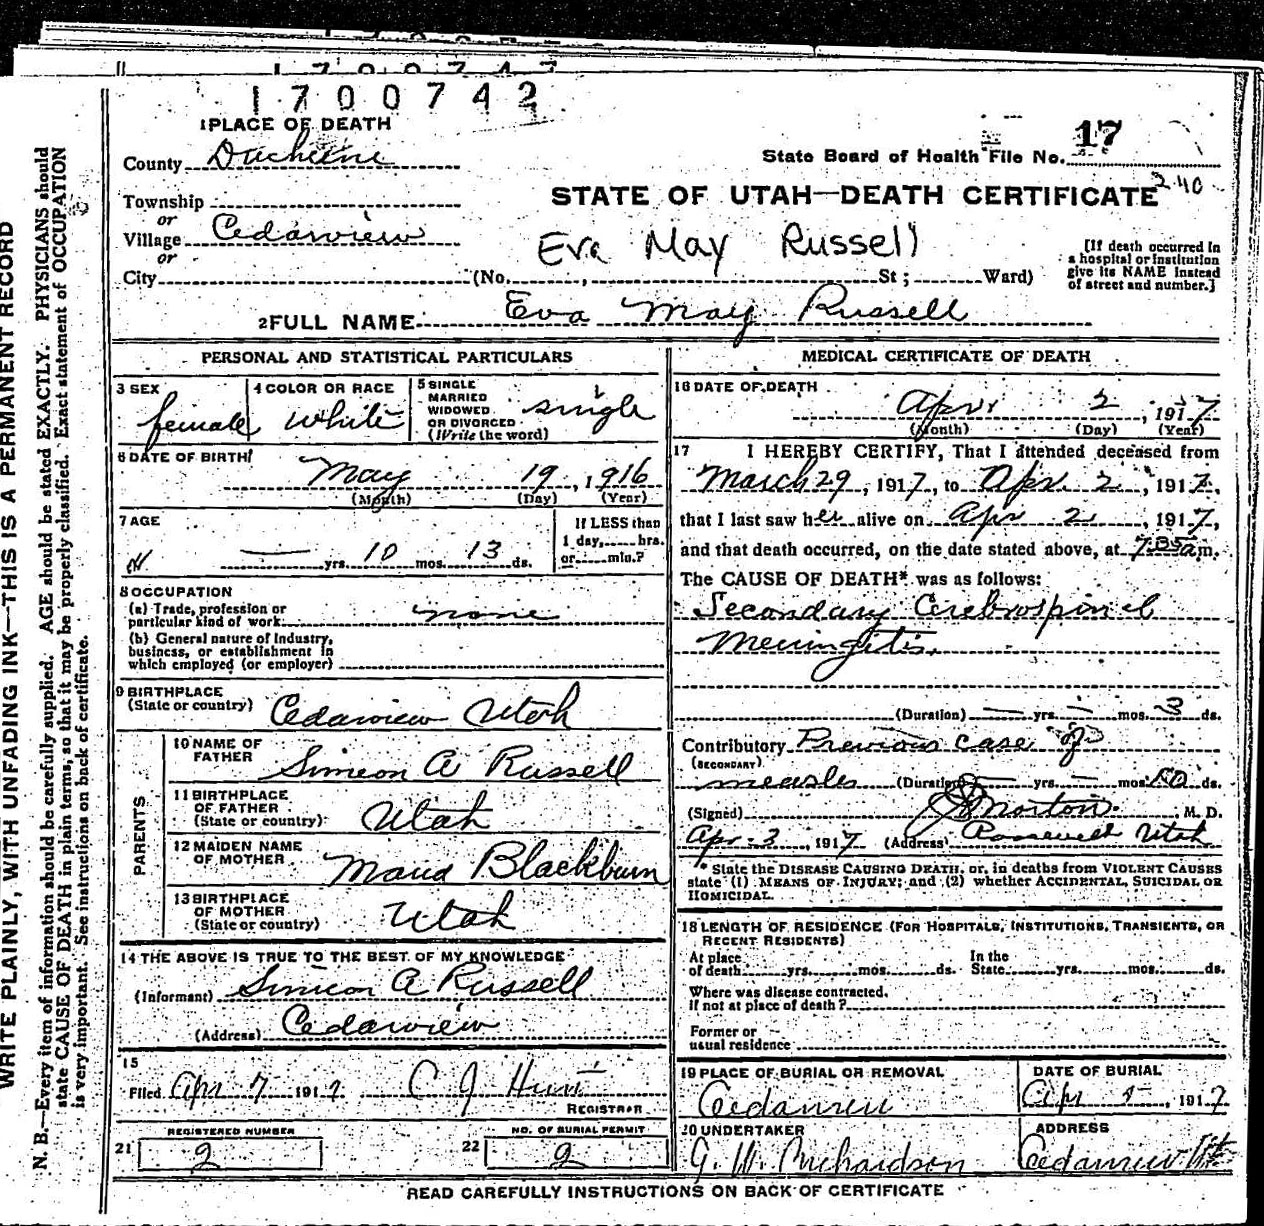 1700742
1 PLACE OF DEATH
County Duchesne
State Board of Health File No. 17
240
STATE OF UTAH—DEATH CERTIFICATE
Township
or
Village Cedarview
or
Eva May Russell
City (No. , St ; Ward)
[If death occurred in
a hospital or institution
give its NAME instead
of street and number.]
2 FULL NAME Eva May Russell
PERSONAL AND STATISTICAL PARTICULARS
3 SEX
female
4 COLOR OR RACE
white
5 SINGLE
MARRIED
WIDOWED
OR DIVORCED
(Write the word)
single
6 DATE OF BIRTH
May 19, 1916
(Month) (Day) (Year)
7 AGE
yrs. 10 mos. 13 ds.
If LESS than
1 day, hrs.
or min.?
8 OCCUPATION
(a) Trade, profession or
particular kind of work none
(b) General nature of Industry,
business, or establishment in
which employed (or employer)
9 BIRTHPLACE
(State or country) Cedarview Utah
PARENTS
10 NAME OF
FATHER Simeon A Russell
11 BIRTHPLACE
OF FATHER
(State or country) Utah
12 MAIDEN NAME
OF MOTHER Maud Blackburn
13 BIRTHPLACE
OF MOTHER
(State or country) Utah
14 THE ABOVE IS TRUE TO THE BEST OF MY KNOWLEDGE
(Informant) Simeon A Russell
(Address) Cedarview
15
Filed Apr 7 1917 C J Hunt
REGISTRAR
REGISTERED NUMBER
21 2
NO. OF BURIAL PERMIT
22 2
MEDICAL CERTIFICATE OF DEATH
16 DATE OF DEATH
Apr. 2, 1917
(Month) (Day) (Year)
17 I HEREBY CERTIFY, That I attended deceased from
March 29, 1917, to Apr. 2, 1917,
that I last saw her alive on Apr 2, 1917,
and that death occurred, on the date stated above, at 7.35 a m.
The CAUSE OF DEATH* was as follows:
Secondary Cerebrospinal
Meningitis.
(Duration) — yrs. — mos. 3 ds.
Contributory Previous case of
(SECONDARY)
measles (Duration) — yrs. — mos. 10 ds.
(Signed) Morton M. D.
Apr. 3, 1917 (Address) Roosevelt Utah
* State the DISEASE CAUSING DEATH, or, in deaths from VIOLENT CAUSES
state (1) MEANS OF INJURY; and (2) whether ACCIDENTAL, SUICIDAL OR
HOMICIDAL.
18 LENGTH OF RESIDENCE (FOR HOSPITALS, INSTITUTIONS, TRANSIENTS, OR
RECENT RESIDENTS)
At place In the
of death yrs. mos. ds. State yrs. mos. ds.
Where was disease contracted,
if not at place of death?
Former or
usual residence
19 PLACE OF BURIAL OR REMOVAL
Cedarview
DATE OF BURIAL
Apr 5, 1917
20 UNDERTAKER
G. W. Richardson
ADDRESS
Cedarview Ut
READ CAREFULLY INSTRUCTIONS ON BACK OF CERTIFICATE
WRITE PLAINLY, WITH UNFADING INK—THIS IS A PERMANENT RECORD
N. B.—Every item of information should be carefully supplied. AGE should be stated EXACTLY. PHYSICIANS should
state CAUSE OF DEATH in plain terms, so that it may be properly classified. Exact statement of OCCUPATION
is very important. See instructions on back of certificate.